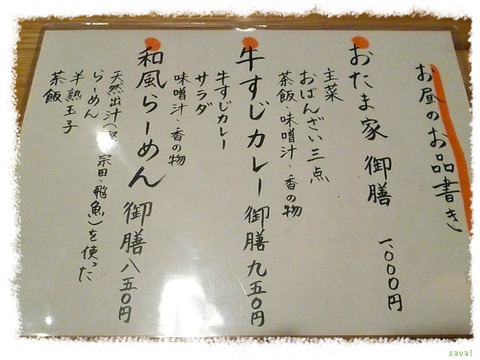 お昼のお品書き
おたま家 御膳 一、〇〇〇円
主菜
おばんざい三点
茶飯・味噌汁・香の物
牛すじカレー御膳 九五〇円
牛すじカレー
サラダ
味噌汁・香の物
和風らーめん 御膳 八五〇円
天然出汁 宗田・飛魚)を使った
らーめん
半熟玉子
茶飯
sava!